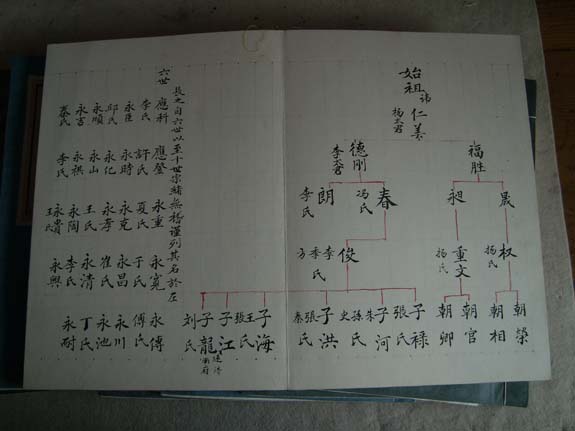 始祖 讳 仁義
楊太君
福胜
德剛
李太君
晟
昶
春
馮氏
朗
李氏
权
楊氏
重文
楊氏
俊
李氏
季
方
朝榮
朝相
朝官
朝卿
子禄
張氏
子河
朱
孫氏
史
子洪
張氏
秦
子海
王氏
張
子江
子龍
刘氏
長之自六世以至十世宗緒無稽谨列其名於左
六世
應科 應登 永重 永寛 永傳
李氏 許氏 夏氏 于氏 傅氏
永臣 永時 永克 永昌 永川
邱氏 永化 永孝 崔氏 永池
永順 永山 王氏 永清 丁氏
永吉 永祺 永陶 李氏 永耐
李氏 永貴 永興
王氏